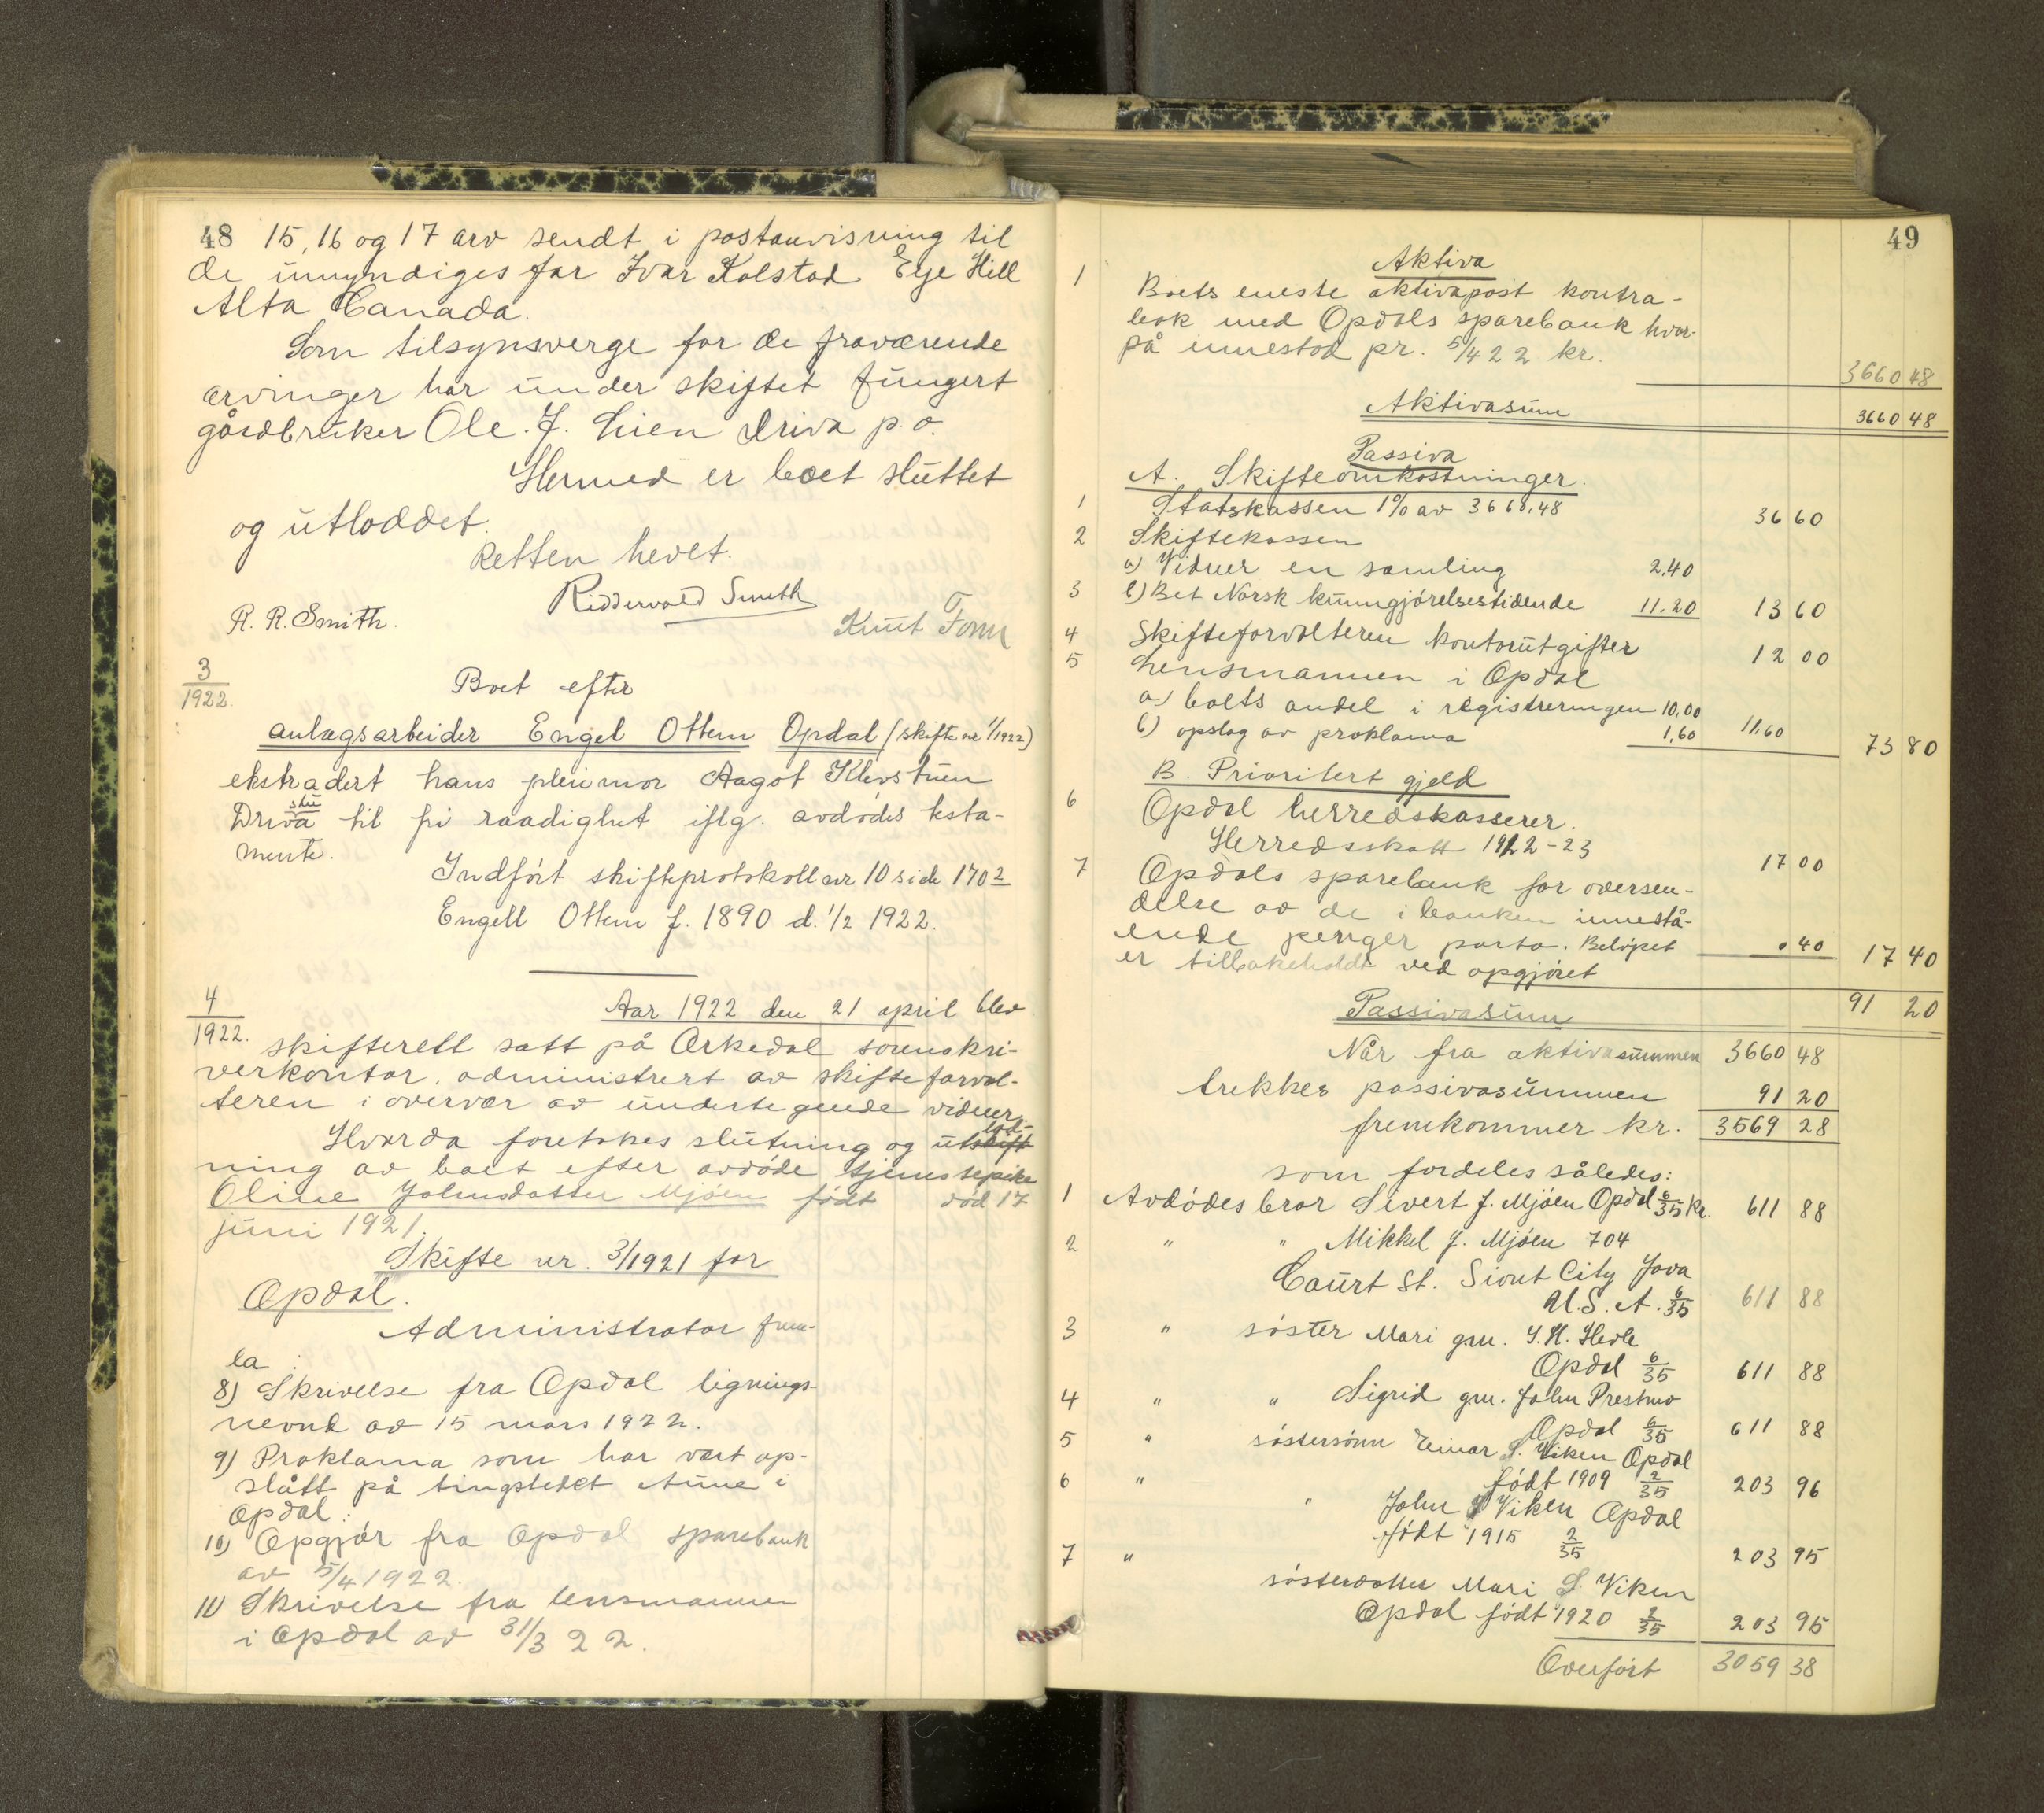 48 15, 16 og 17 arv sendt i postanvisning til
de umyndiges far Ivar Kolstad Eye Hill
Alta Canada.
Som tilsynsverge for de fraværende
arvinger har under skiftet fungert
gårdbruker Ole. J. Lien Driva p.o.
Hermed er boet sluttet
og utloddet.
Retten hevet.
Ridderwold Smith
R. R. Smith.
Knut
3
1922.
Boet efter
anlægsarbeider Engel Ottem Opdal (skifte nr 1/1922)
ekstradert hans pleiemor Aagot Klevstuen
stu
Driva til fri raadighet iflg. avdødes testa-
mente.
Indført skifteprotokoll nr 10 side 170 2
Engell Ottem f. 1890 d. 1/2 1922.
4
1922.
Aar 1922 den 21 april blev
skifterett satt på Orkedal sorenskri-
verkontor, administrert av skifteforval-
teren i overvær av undertegnede vidner.
Hvorda foretokes slutning og utskift
lod-
ning av boet efter avdøde tjenestepike
Oline Johnsdatter Mjøen født død 17
juni 1921.
Skifte nr. 3/1921 for
Opdal.
Administrator frem-
la :
8) Skrivelse fra Opdal lignings-
nevnd av 15 mars 1922.
9) Proklama som har vært op-
slått på tingstedet Aune i
Opdal.
10) Opgjør fra Opdal sparebank
av 5/4 1922.
11) Skrivelse fra lensmannen
i Opdal av 31/3 22.
49
Aktiva
1 Boets eneste aktivapost kontra-
bok med Opdals sparebank hvor-
på innestod pr. 5/4 22 kr. 3660 48
Aktivasum 3660 48
Passiva
A. Skifteomkostninger.
1 Statskassen 1% av 3660,48 36 60
2 Skiftekassen
a) Vidner en samling 2.40
3 b) Bet Norsk kunngjørelsestidende 11.20 13 60
4 Skifteforvalteren kontorutgifter 12 00
5 Lensmannen i Opdal
a) boets andel i registreringen 10.00
b) opslag av proklama 1,60 11,60 73 80
B. Prioritert gjeld
6 Opdal herredskasserer.
Herredsskatt 1922-23 17 00
7 Opdals sparebank for oversen-
delse av de i banken innestå-
ende penger porto. Beløpet 0 40 17 40
er tilbakeholdt ved opgjøret
Passivasum 91 20
Når fra aktivasummen 3660 48
trekkes passivasummen 91 20
fremkommer kr. 3569 28
som fordeles således:
1 Avdødes bror Sivert J. Mjøen Opdal 6/35 kr. 611 88
2 " " Mikkel J. Mjøen 704
Court St. Siout City Jova
U.S.A. 6/35 611 88
3 " søster Mari gm. J. H. Hevle
Opdal 6/35 611 88
4 " " Sigrid gm. John Prestmo
Opdal 6/35 611 88
5 " søstersønn Einar S. Viken Opdal
født 1909 2/35 203 96
6 " " John S Viken Opdal
født 1915 2/35 203 95
7 " søsterdatter Mari S. Viken
Opdal født 1920 2/35 203 95
Overført 3059 38